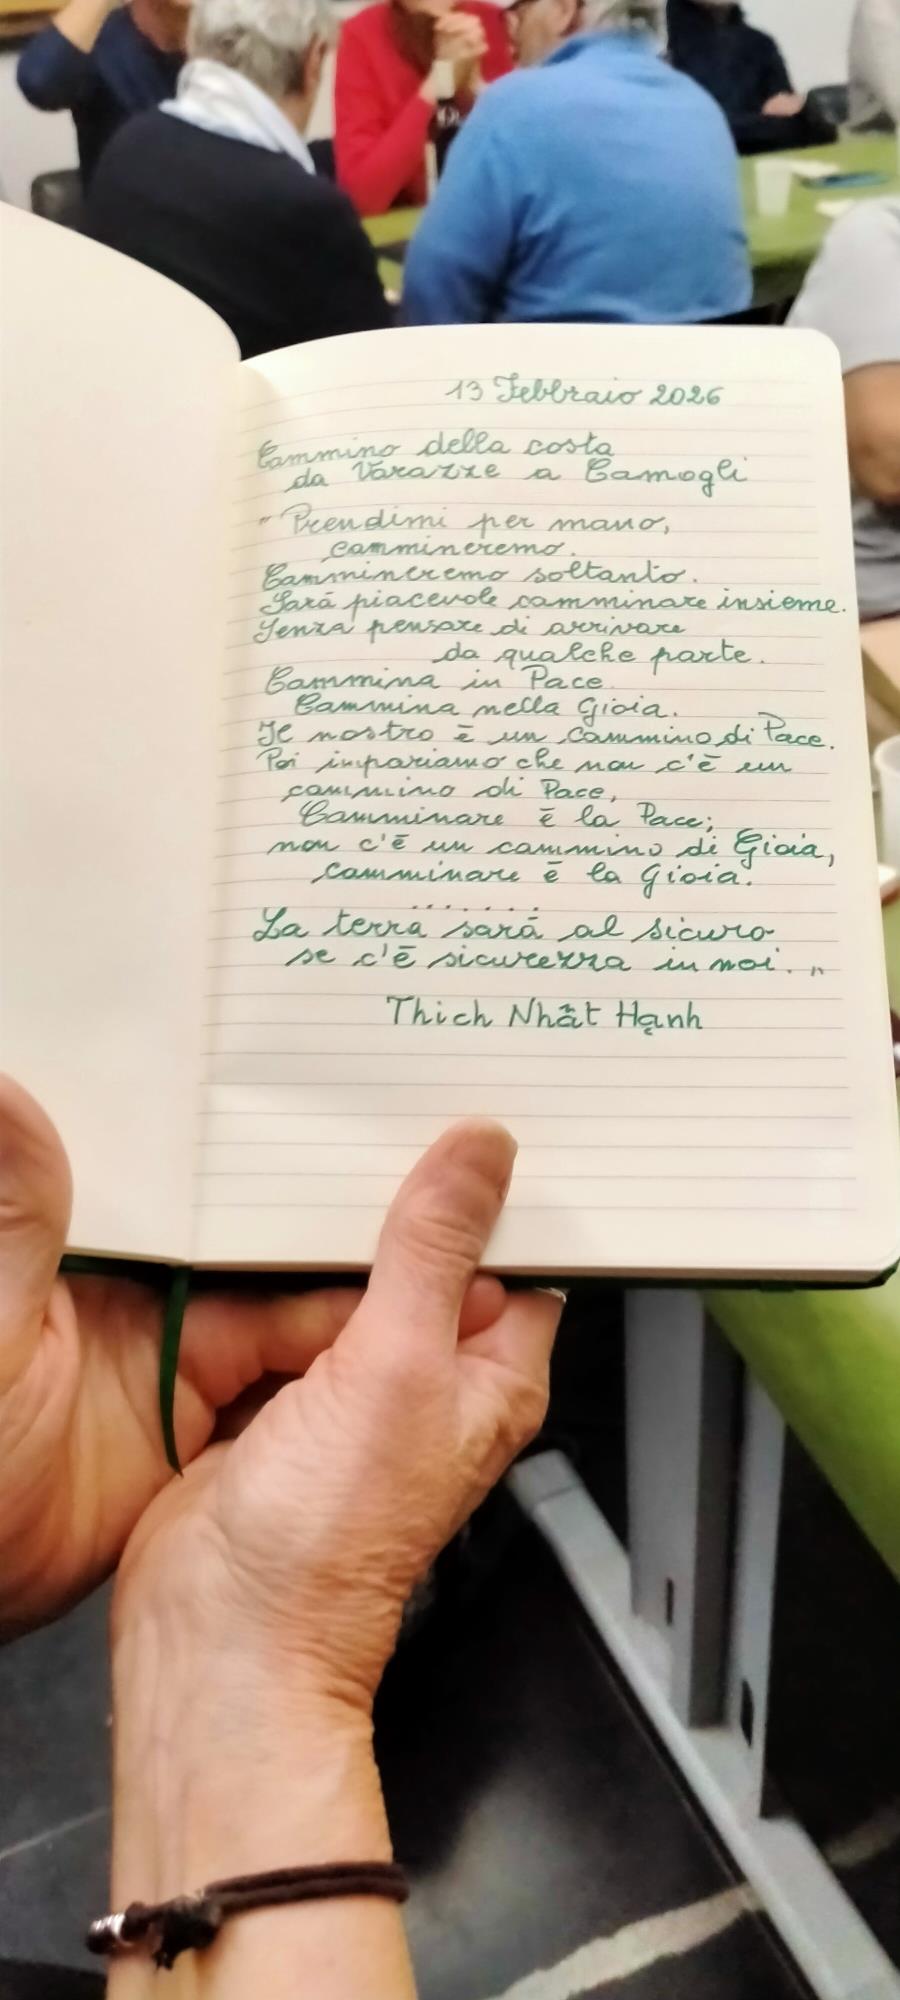 13 Febbraio 2026
Cammino della costa
da Varazze a Camogli
"Prendimi per mano,
cammineremo.
Cammineremo soltanto.
Sarā piacevole camminare insieme.
Senza pensare di arrivare
da qualche parte.
Cammina in Pace
Cammina nella Gioia.
Il nostro ē un Cammino di Pace.
Poi impariamo che non c'ē un
cammino di Pace,
Camminare ē la Pace;
non c'ē un cammino di Gioia,
camminare ē la Gioia.
.......
La terra sarā al sicuro
se c'ē sicurezza in noi."
Thich Nhất Hạnh